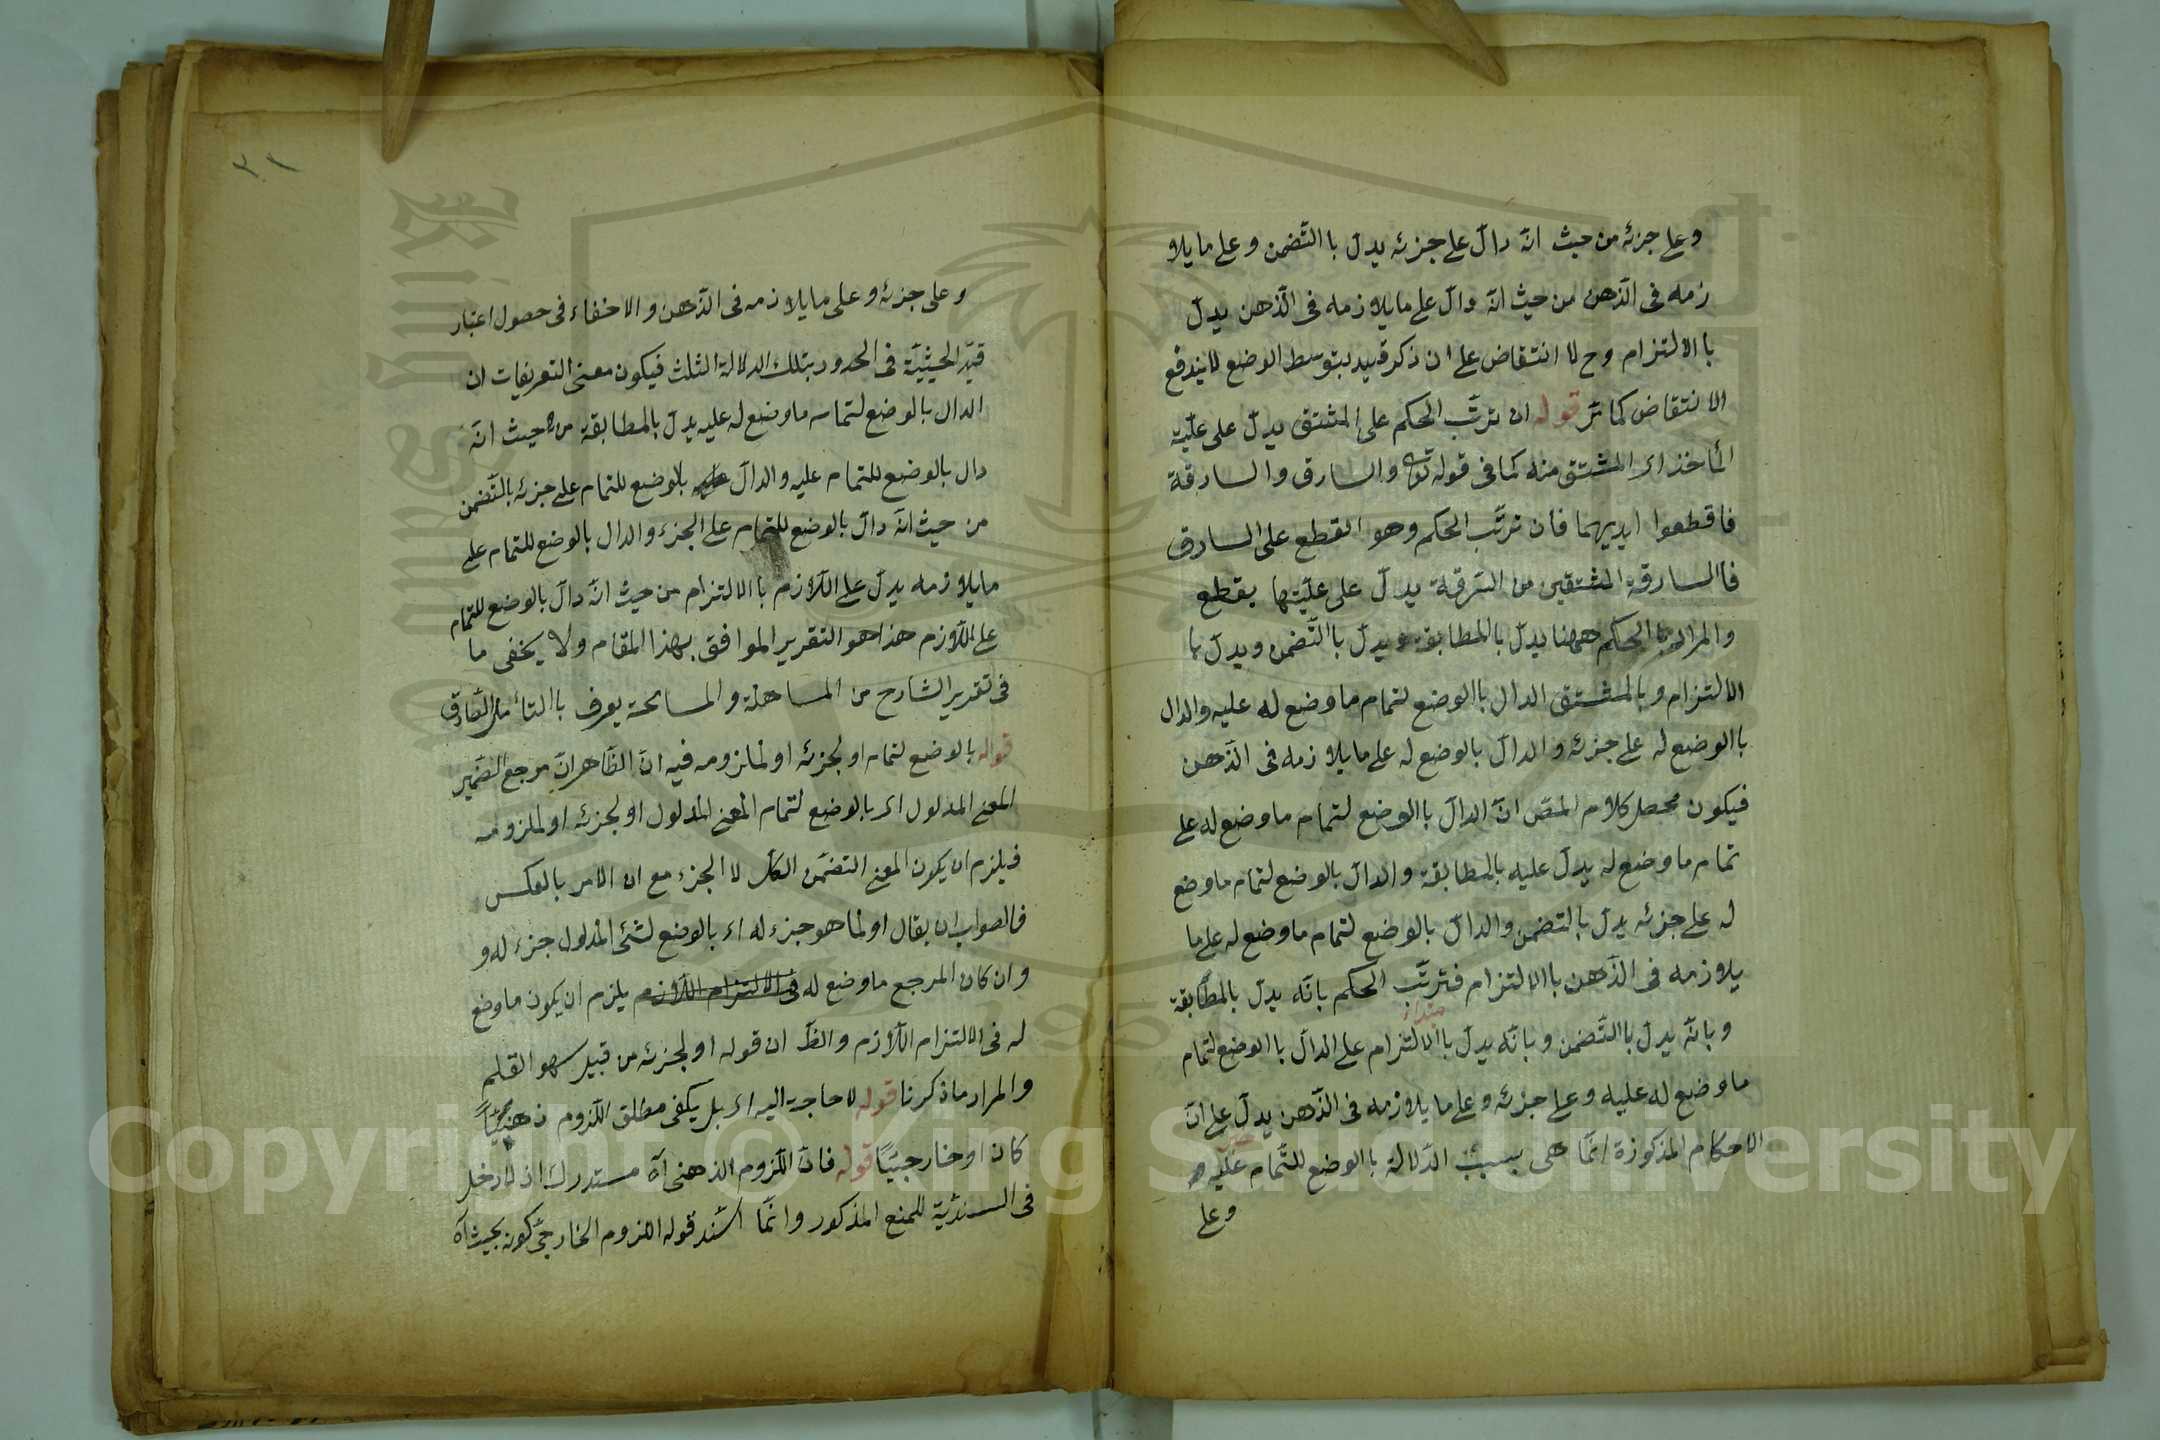 وعلى جزئه من حيث انّه دالّ على جزئه يدلّ باالتّضمن وعلى ما يلا
زمه فى الذّهن من حيث انّه دالّ على ما يلازمه فى الذّهن يدلّ
باالالتزام وح لا انتقاض على ان ذكر قيد بتوسط الوضع لايندفع
الانتقاض كما مرّ قوله ان ترتّب الحكم على المشتق يدلّ على علّية
المأخذ اى المشتق منه كما فى قوله تعالى والسارق والسارقة
فاقطعوا ايديهما فان ترتّب الحكم وهو القطع على السارق
فاالسارقة المشتقين من السّرقة يدلّ على علّيتها يقطع
والمراد باالحكم ههنا يدلّ باالمطابقة ويدلّ باالتّضمن ويدلّ با
الالتزام وبالمشتق الدال باالوضع لتمام ما وضع له عليه والدال
باالوضع له على جزئه والدالّ بالوضع له على ما يلازمه فى الذّهن
فيكون محصل كلام المصّ انّ الدالّ باالوضع لتمام ما وضع له على
تمام ما وضع له يدلّ عليه بالمطابقة والدالّ بالوضع لتمام ما وضع
له على جزئه يدلّ بالتضمن والدالّ بالوضع لتمام ما وضع له على ما
يلازمه فى الذّهن باالالتزام فترتّب الحكم بانّه يدلّ بالمطابقة
مبتداء
وبانّه يدلّ باالتّضمن وبانّه يدلّ باالالتزام على الدالّ باالوضع لتمام
ما وضع له عليه وعلى جزئه وعلى ما يلازمه فى الذّهن يدلّ على انّ
الاحكام المذكورة انّما هى بسبب الدّلالة باالوضع للتّمام عليه
وعلى
٣١
وعلى جزئه وعلى ما يلازمه فى الذّهن والاخفاء فى حصول اعتبار
قيد الحيثيّة فى الحدود بتلك الدلالة الثلث فيكون معنى التعريفات ان
الدال بالوضع لتمام ما وضع له عليه يدلّ بالمطابقة من حيث انّه
دال بالوضع للتمام عليه والدالّ بالوضع للتمام على جزئه بالتّضمن
من حيث انّه دالّ بالوضع للتمام على الجزء والدال بالوضع للتمام على
ما يلازمه يدلّ على اللّازم باالالتزام من حيث انّه دالّ بالوضع للتمام
على اللّازم هذا هو التقرير الموافق بهذا المقام ولا يخفى ما
فى تقرير الشارح من المساهلة والمسامحة يعرف باالتأمل الصّادق
قوله بالوضع لتمامه او لجزئه او لملزومه فيه انّ الظّاهر انّ مرجع الضّمير
المعنى المدلول اى بالوضع لتمام المعنى المدلول او لجزئه او لملزومه
فيلزم ان يكون المعنى التضمّن الكل لا الجزء مع ان الامر بالعكس
فالصواب ان يقال او لما هو جزء له اى بالوضع لشئ المدلول جزء له و
وان كان المرجع ما وضع له فى الالتزام اللّازم يلزم ان يكون ما وضع
له فى الالتزام اللّازم والظّ ان قوله او لجزئه من قبيل سهو القلم
والمراد ما ذكرنا قوله لا حاجة اليه اى بل يكفى مطلق اللّزوم ذهنيّاً
كان او خارجيّاً قوله فانّ اللّزوم الذهنى آه مستدرك اذ لا دخل
فى السنديّة للمنع المذكور وانّما السّند قوله اللزوم الخارجىّ كونه بحيث آه